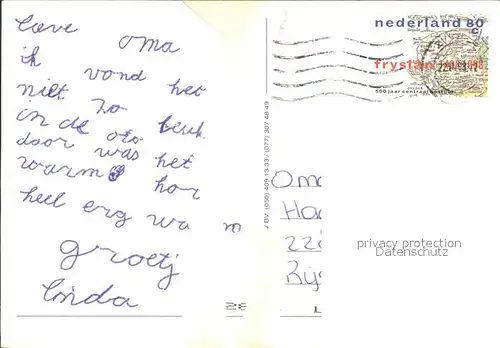 lieve oma
ik vond het
niet zo leuk
in de oto
daar was het
warm hor
heel erg wa m
groetj
linda
nederland 80
fryslân
500 jaar centraal
BV. (050) 409 13 33 / (077) 307 48 49
Oma
Ha
22
Rijs
privacy protection
Datenschutz